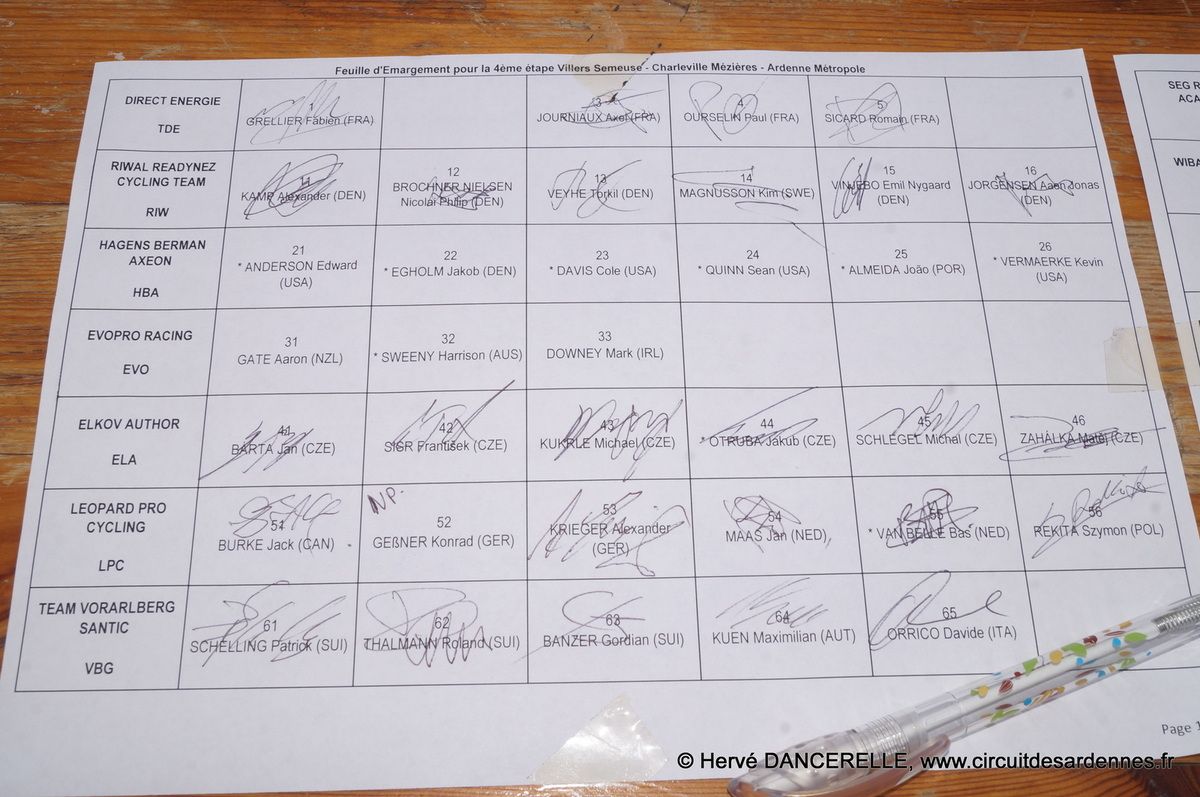 Feuille d'Emargement pour la 4ème étape Villers Semeuse - Charleville Mézières - Ardenne Métropole
DIRECT ENERGIE
TDE
1
GRELLIER Fabien (FRA)
3
JOURNIAUX Axel (FRA)
4
OURSELIN Paul (FRA)
5
SICARD Romain (FRA)
RIWAL READYNEZ
CYCLING TEAM
RIW
11
KAMP Alexander (DEN)
12
BROCHNER NIELSEN
Nicolai Philip (DEN)
13
VEYHE Torkil (DEN)
14
MAGNUSSON Kim (SWE)
15
VINJEBO Emil Nygaard
(DEN)
16
JORGENSEN Aaen Jonas
(DEN)
HAGENS BERMAN
AXEON
HBA
21
* ANDERSON Edward
(USA)
22
* EGHOLM Jakob (DEN)
23
* DAVIS Cole (USA)
24
* QUINN Sean (USA)
25
* ALMEIDA João (POR)
26
* VERMAERKE Kevin
(USA)
EVOPRO RACING
EVO
31
GATE Aaron (NZL)
32
* SWEENY Harrison (AUS)
33
DOWNEY Mark (IRL)
ELKOV AUTHOR
ELA
41
BÁRTA Jan (CZE)
42
SIGR František (CZE)
43
KUKRLE Michael (CZE)
44
* OTRUBA Jakub (CZE)
45
SCHLEGEL Michal (CZE)
46
ZAHÁLKA Matěj (CZE)
LEOPARD PRO
CYCLING
LPC
51
BURKE Jack (CAN)
NP.
52
GEßNER Konrad (GER)
53
KRIEGER Alexander
(GER)
54
MAAS Jan (NED)
55
* VAN BELLE Bas (NED)
56
REKITA Szymon (POL)
TEAM VORARLBERG
SANTIC
VBG
61
SCHELLING Patrick (SUI)
62
THALMANN Roland (SUI)
63
BANZER Gordian (SUI)
64
KUEN Maximilian (AUT)
65
ORRICO Davide (ITA)
SEG R
ACA
WIBA
Page 1
© Hervé DANCERELLE, www.circuitdesardennes.fr